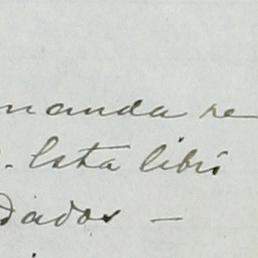 manda re
. Esta libri
dados —